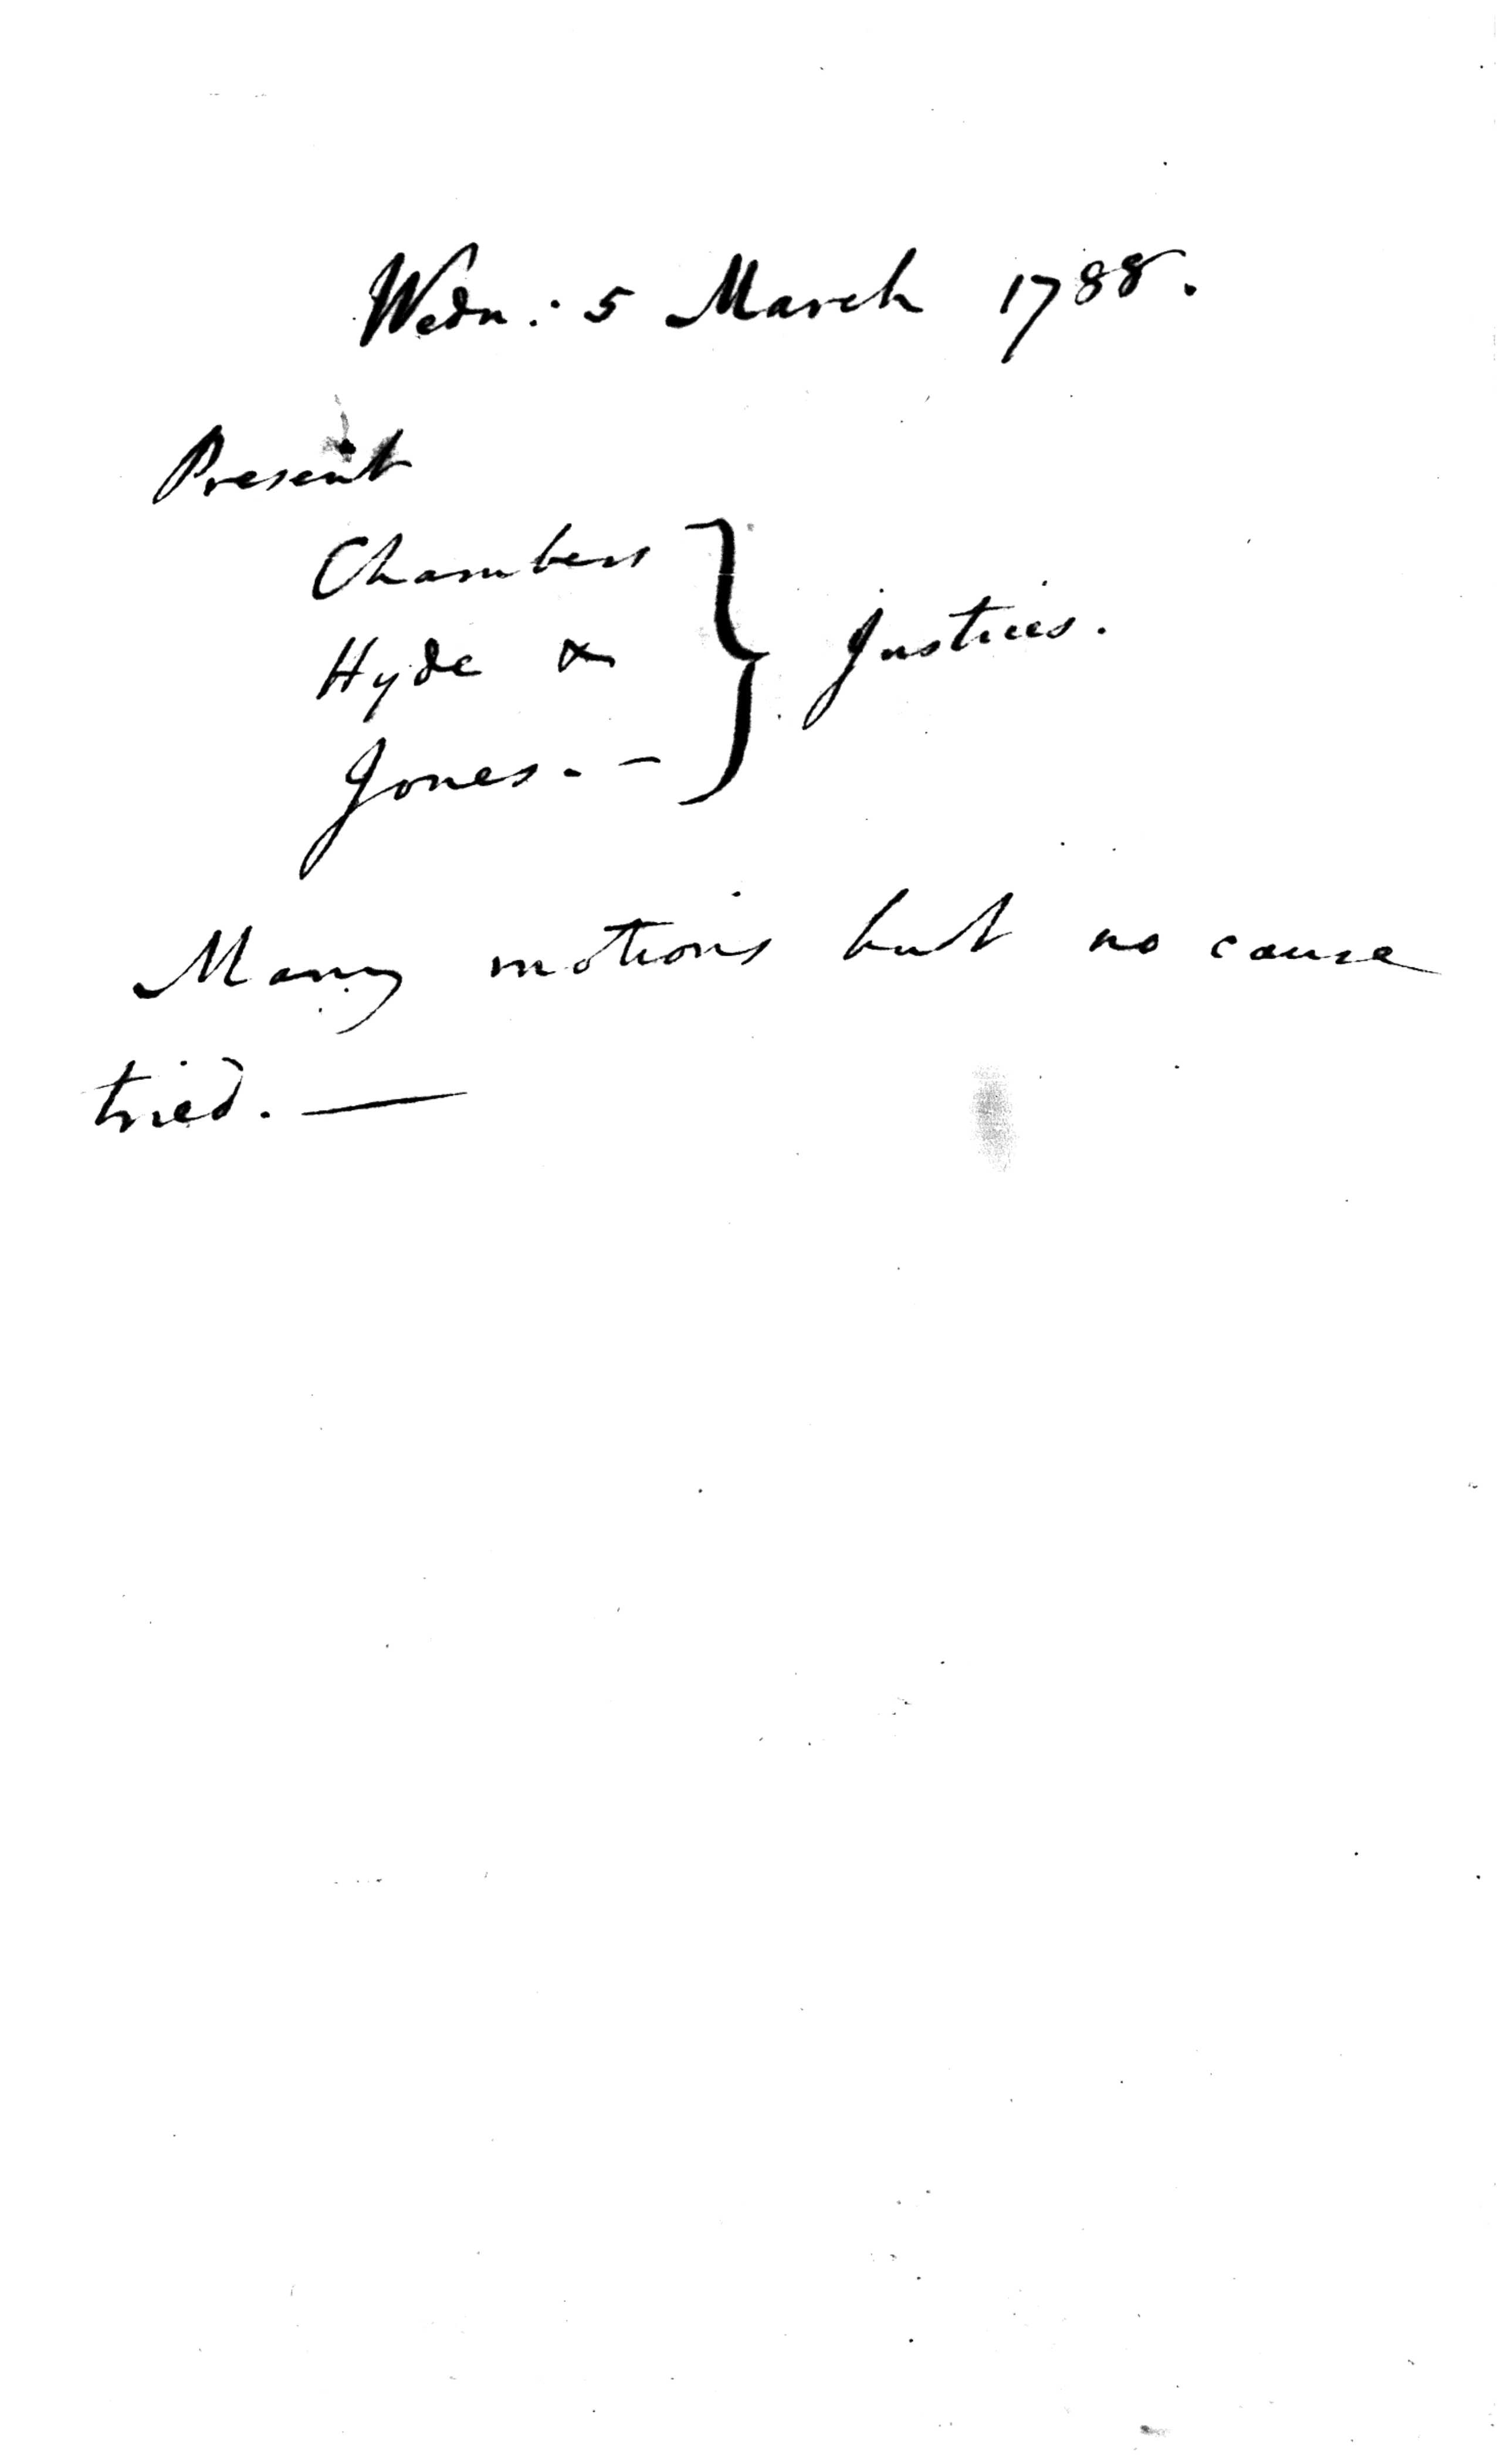 Wedn: 5 March 1788.
Present
Chambers
Hyde &
Jones. -
} Justices.
Many motions but no cause
tried. —